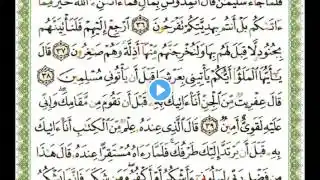 فَلَمَّا جَاءَ سُلَيْمَٰنَ قَالَ أَتُمِدُّونَنِ بِمَالٍ فَمَا ءَاتَىٰنِۦَ ٱللَّهُ خَيْرٌ مِّمَّا
ءَاتَىٰكُم بَلْ أَنتُم بِهَدِيَّتِكُمْ تَفْرَحُونَ ٣٦ ٱرْجِعْ إِلَيْهِمْ فَلَنَأْتِيَنَّهُم
بِجُنُودٍ لَّا قِبَلَ لَهُم بِهَا وَلَنُخْرِجَنَّهُم مِّنْهَآ أَذِلَّةً وَهُمْ صَٰغِرُونَ ٣٧ قَالَ
يَٰٓأَيُّهَا ٱلْمَلَؤُا۟ أَيُّكُمْ يَأْتِينِى بِعَرْشِهَا قَبْلَ أَن يَأْتُونِى مُسْلِمِينَ
٣٨ قَالَ عِفْرِيتٌ مِّنَ ٱلْجِنِّ أَنَا۠ ءَاتِيكَ بِهِۦ قَبْلَ أَن تَقُومَ مِن مَّقَامِكَ وَإِنِّى
عَلَيْهِ لَقَوِىٌّ أَمِينٌ ٣٩ قَالَ ٱلَّذِى عِندَهُۥ عِلْمٌ مِّنَ ٱلْكِتَٰبِ أَنَا۠ ءَاتِيكَ
بِهِۦ قَبْلَ أَن يَرْتَدَّ إِلَيْكَ طَرْفُكَ فَلَمَّا رَءَاهُ مُسْتَقِرًّا عِندَهُۥ قَالَ هَٰذَا
مِن فَضْلِ رَبِّى لِيَبْلُوَنِىٓ ءَأَشْكُرُ أَمْ أَكْفُرُ وَمَن شَكَرَ فَإِنَّمَا يَشْكُرُ